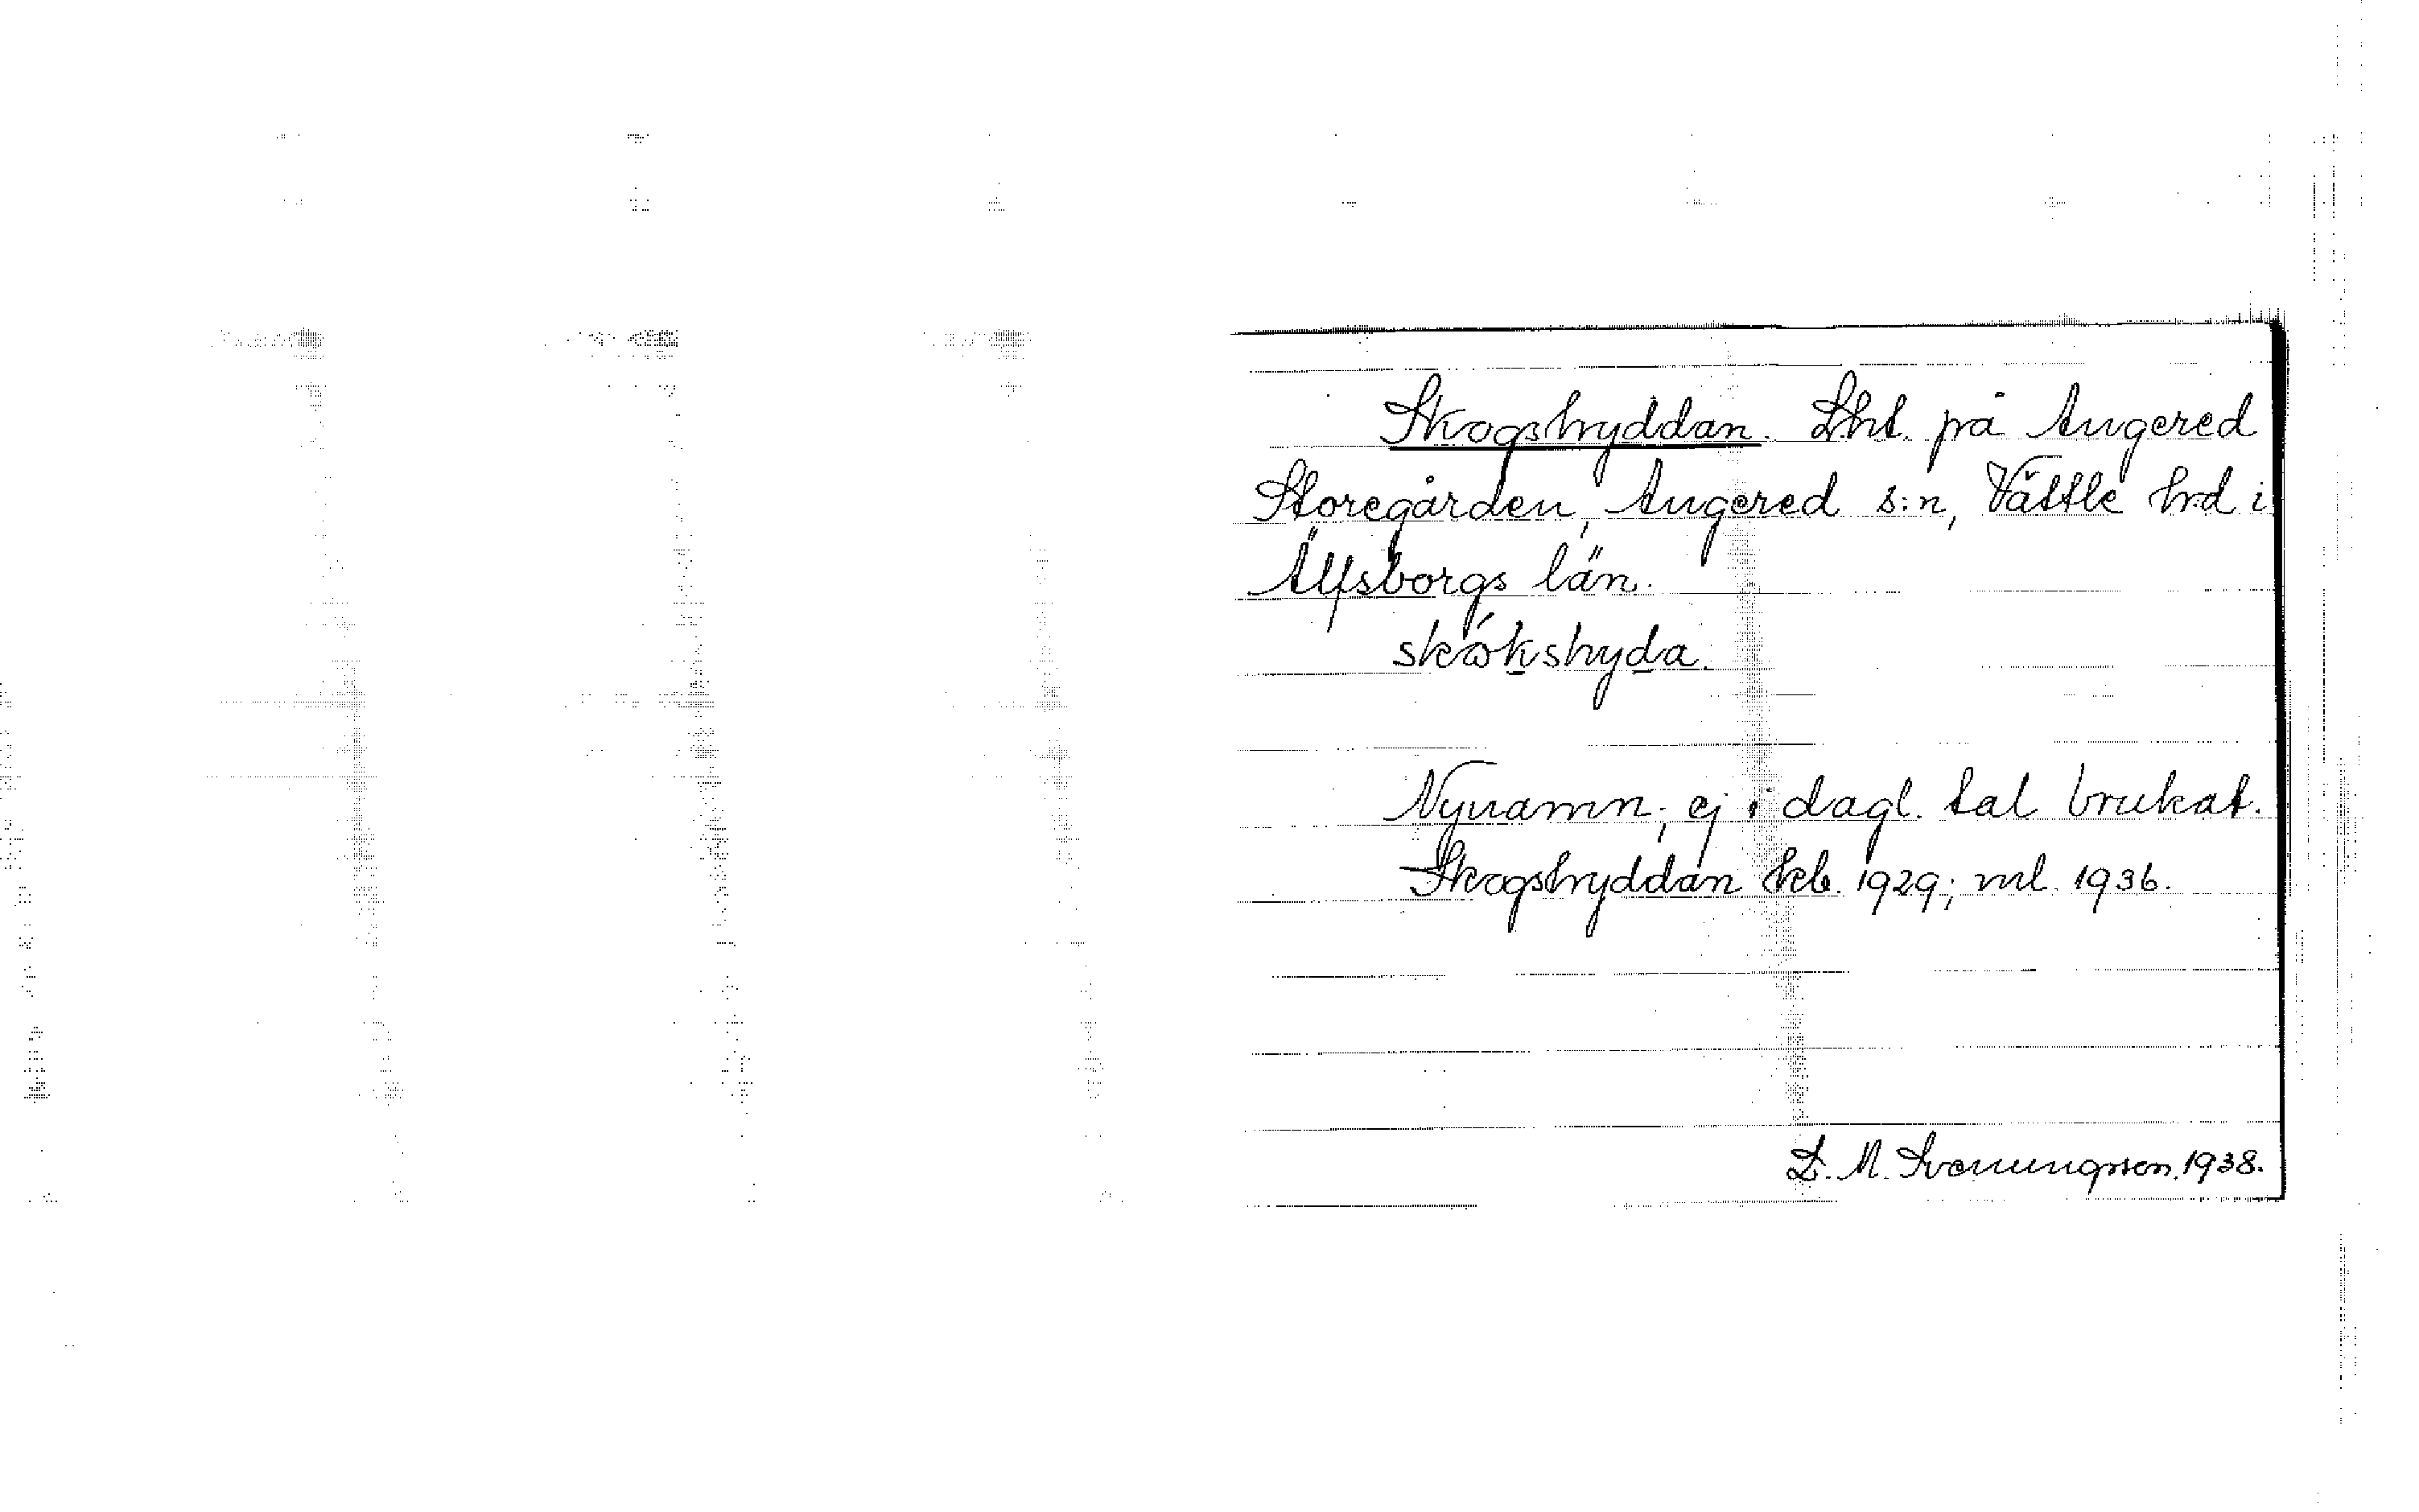 Skogshyddan. Lht. på Angered
Storegården, Angered s:n, Vättle hrd i
Älfsborgs län.
skòkshyda.
Nynamn; ej i dagl. tal brukat.
Skogshyddan kb. 1929; ml. 1936.
M. Svenungsson, 1938.